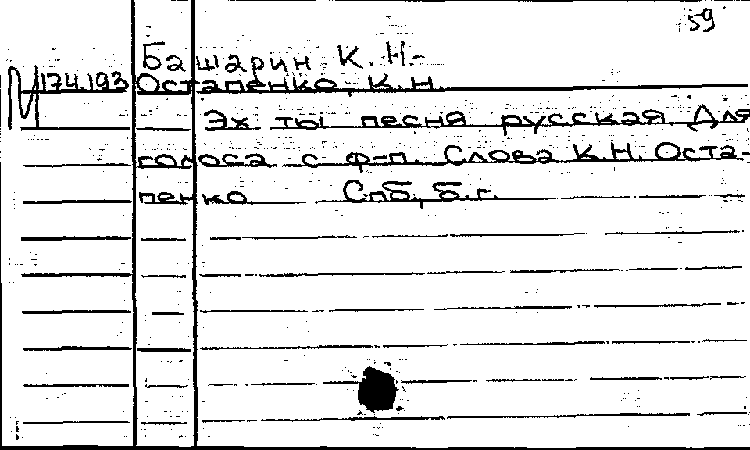 59
Башарин К. Н-
М 174.193 Остапенко, К.Н.
Эх ты песня русская. Для
голоса с ф-п. Слова К.Н. Оста-
пенко Спб, б.г.